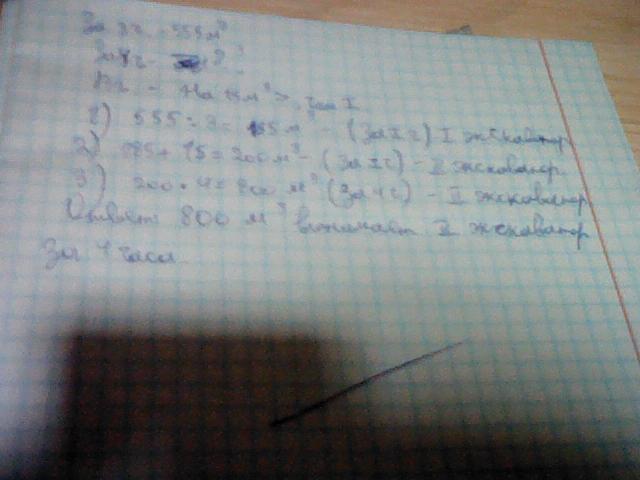 За 3 ч - 555 м³
За 4 ч - м³
На 15 м³ > чем I
1) 555 : 3 = 185 м³ - (За 1 ч) I экскаватор
2) 185 + 15 = 200 м³ - (За 1 ч) - II экскаватор
3) 200 · 4 = 800 м³ (За 4 ч) - II экскаватор
Ответ 800 м³ вынимает II экскаватор
За 4 часа